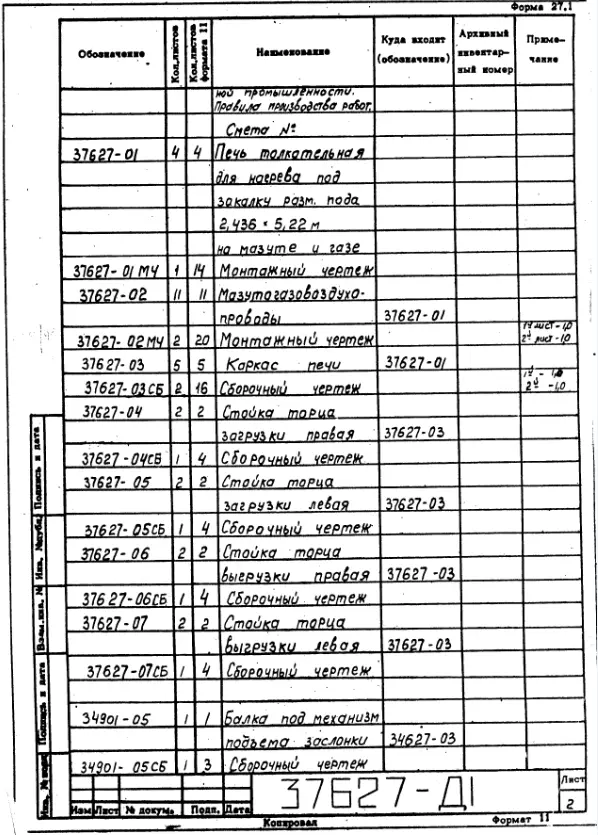 Форма 27.1
Обозначение Кол.листов Кол.листов формата 11 Наименование Куда входит (обозначение) Архивный инвентар-ный номер Приме-чание
ной промышленности.
Правила производства работ.
Смета №
37627-01 4 4 Печь толкательная
для нагрева под
закалку разм. пода
2,436 × 5,22 м
на мазуте и газе
37627-01МЧ 1 14 Монтажный чертеж
37627-02 11 11 Мазутогазовоздухо-
проводы 37627-01
37627-02МЧ 2 20 Монтажный чертеж 1й лист-1,0 2й лист-1,0
37627-03 5 5 Каркас печи 37627-01
37627-03СБ 2 16 Сборочный чертеж 2й -1,0
37627-04 2 2 Стойка торца
загрузки правая 37627-03
37627-04СБ 1 4 Сборочный чертеж
37627-05 2 2 Стойка торца
загрузки левая 37627-03
37627-05СБ 1 4 Сборочный чертеж
37627-06 2 2 Стойка торца
выгрузки правая 37627-03
37627-06СБ 1 4 Сборочный чертеж
37627-07 2 2 Стойка торца
выгрузки левая 37627-03
37627-07СБ 1 4 Сборочный чертеж
34901-05 1 1 Балка под механизм
подъема заслонки 34627-03
34901-05СБ 1 3 Сборочный чертеж
Подпись и дата
Инв. №дубл.
Взам.инв. №
Подпись и дата
Инв. № подл
Изм Лист № докум. Подп. Дата
37627-Д1
Лист
2
Копировал Формат 11